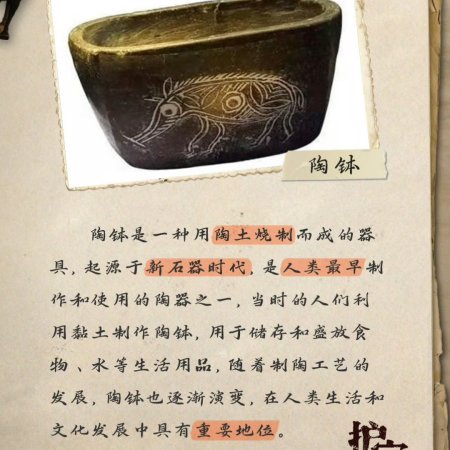 陶钵
陶钵是一种用陶土烧制而成的器
具，起源于新石器时代，是人类最早制
作和使用的陶器之一，当时的人们利
用黏土制作陶钵，用于储存和盛放食
物、水等生活用品，随着制陶工艺的
发展，陶钵也逐渐演变，在人类生活和
文化发展中具有重要地位。
护